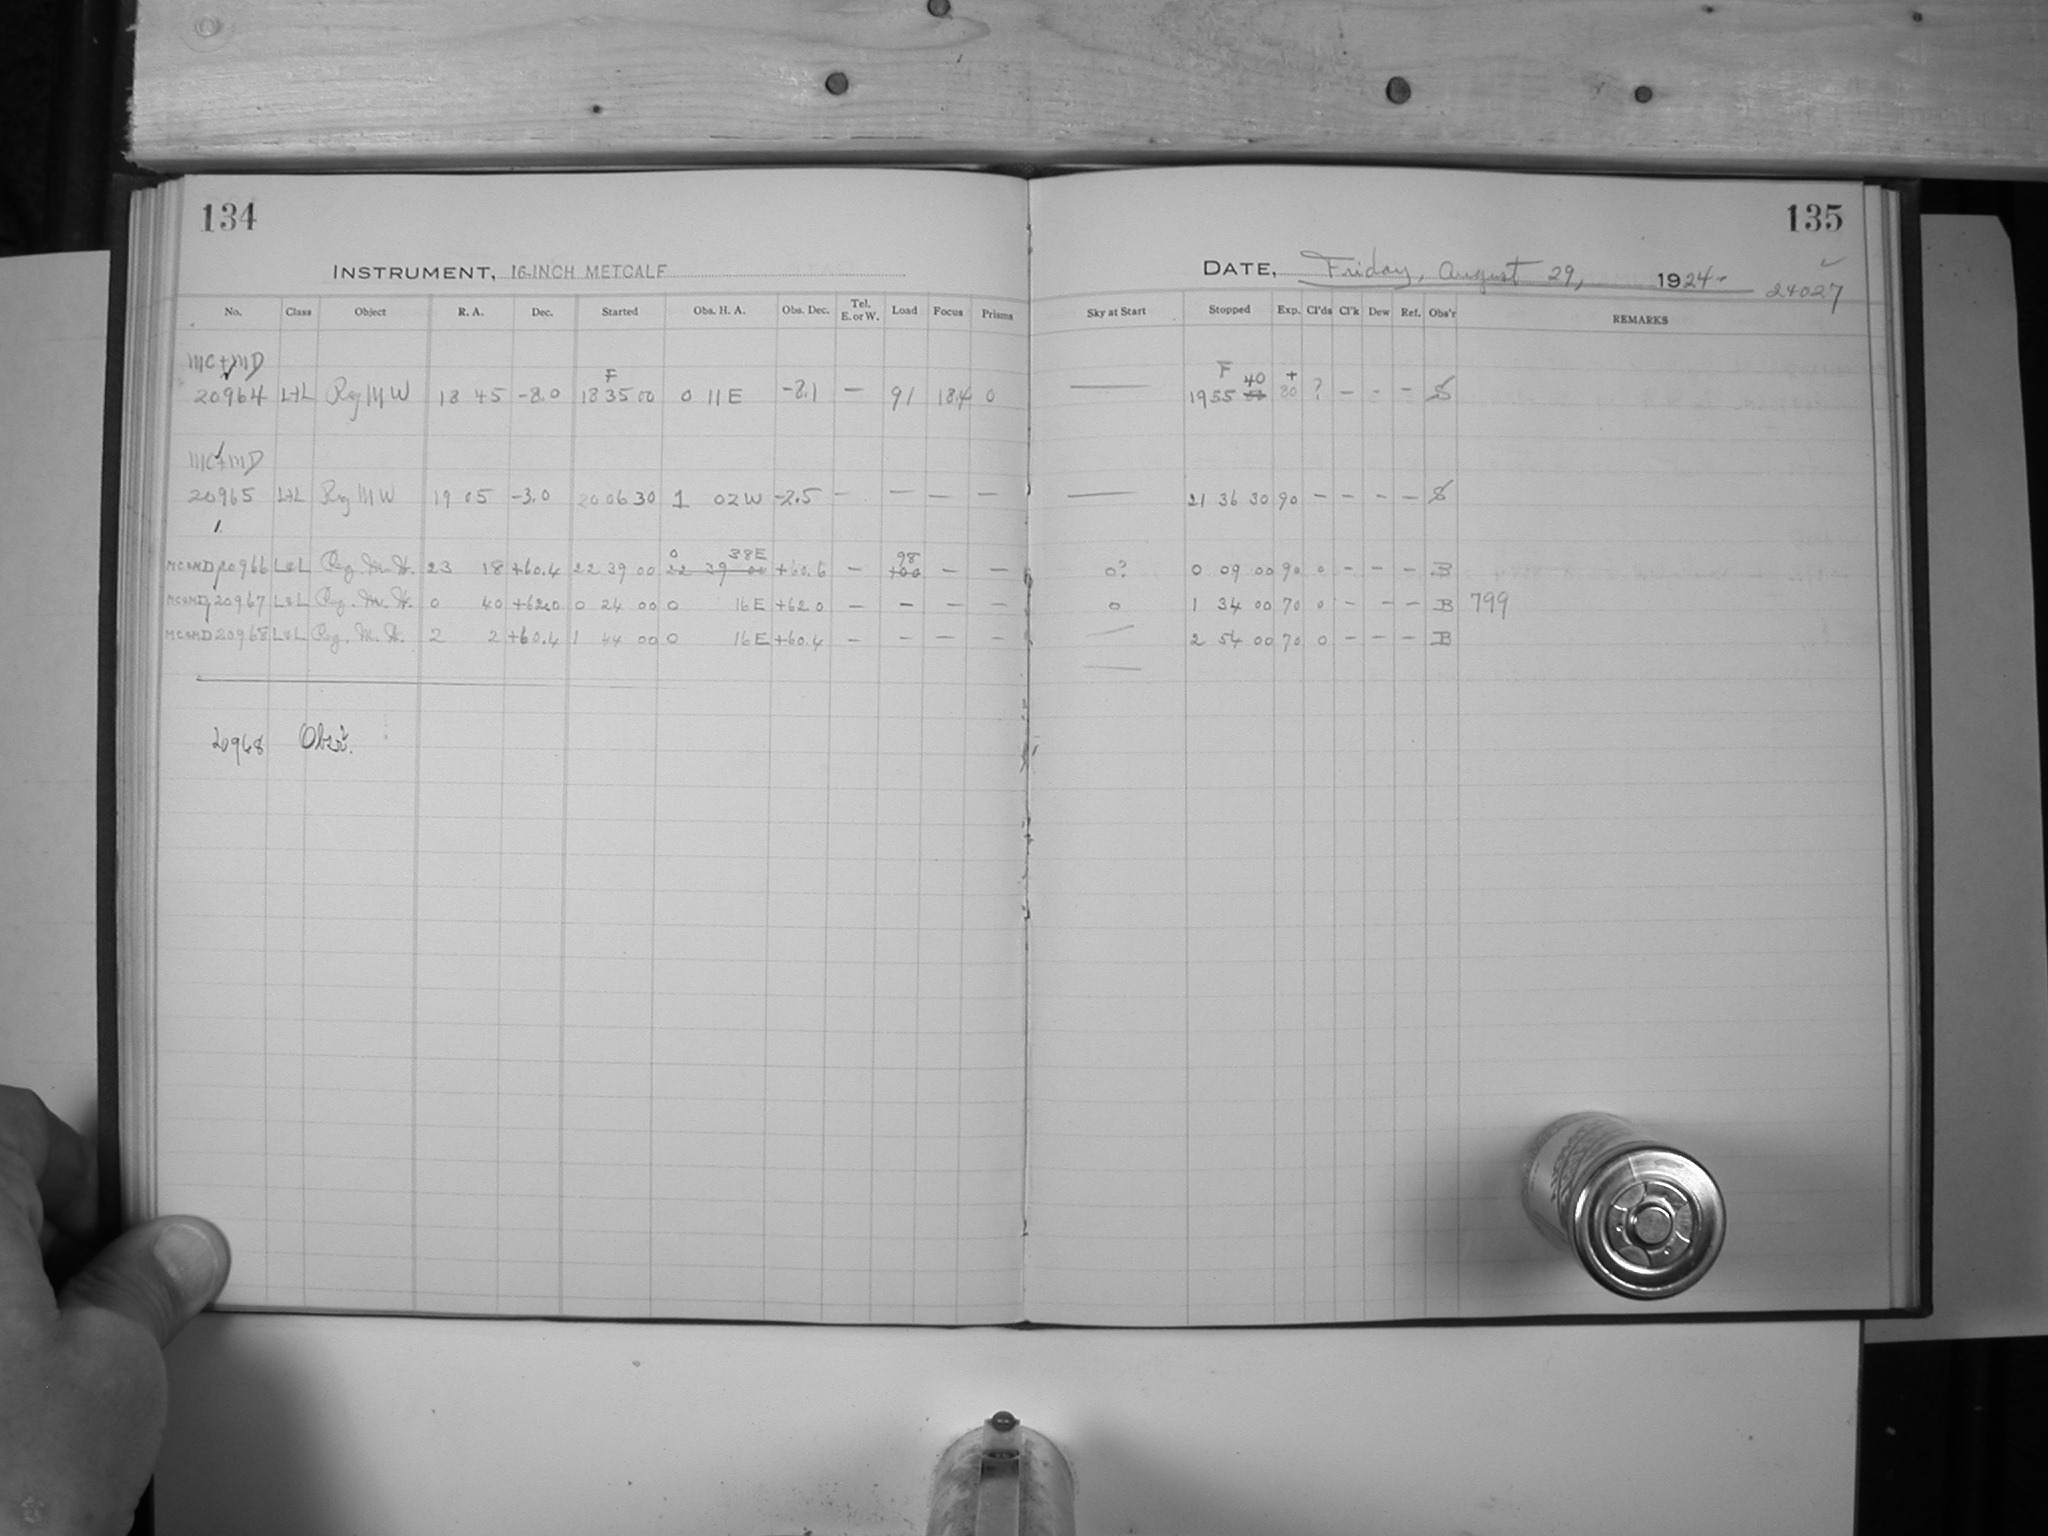 134
135
INSTRUMENT, 16-INCH METCALF
DATE, Friday, August 29, 1924.
24027
No. Class Object R. A. Dec. Started Obs. H. A. Obs. Dec. Tel. E. or W. Load Focus Prisms Sky at Start Stopped Exp. Cl'ds Cl'k Dew Ref. Obs'r REMARKS
MC+MD
F F 40 +
20964 L+L Reg MW 18 45 -8.0 18 35 00 0 11 E -8.1 — 91 18.4 0 — 19 55 80 ? — — — S
MC+MD
20965 L+L Reg MW 19 05 -3.0 20 06 30 1 02 W -2.5 — — — — — 21 36 30 90 — — — — S
0 38E 98
MC&MD 20966 L&L Reg. M. W. 23 18 +60.4 22 39 00 22 39 00 +60.6 — 100 — — 0? 0 09 00 90 0 — — — B
MC&MD 20967 L&L Reg. M. W. 0 40 +62.0 0 24 00 0 16 E +62.0 — — — — 0 1 34 00 70 0 — — — B 799
MC&MD 20968 L&L Reg. M. W. 2 2 +60.4 1 44 00 0 16 E +60.4 — — — — — 2 54 00 70 0 — — — B
20968